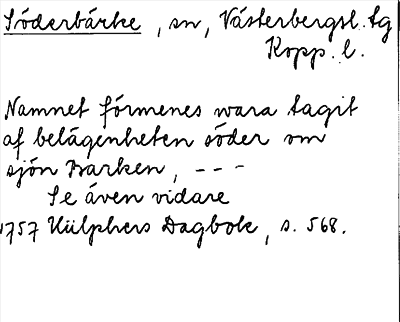 Söderbärke, sn, Västerbergsl. tg
Kopp. l.
Namnet förmenes wara tagit
af belägenheten söder om
sjön Barken, - - -
Se även vidare
1757 Hülphers Dagbok, s. 568.